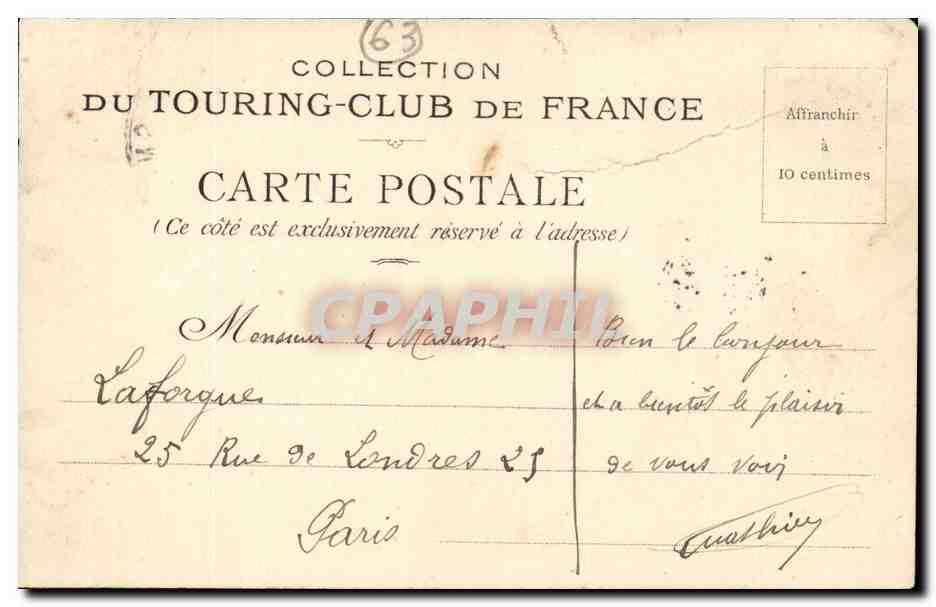 63
COLLECTION
DU TOURING-CLUB DE FRANCE
Affranchir
à
10 centimes
CARTE POSTALE
(Ce côté est exclusivement réservé à l'adresse)
CPAPHIL
Monsieur et Madame
Laforgue
25 Rue de Londres 25
Paris
Bien le bonjour
et a bientôt le plaisir
de vous voir